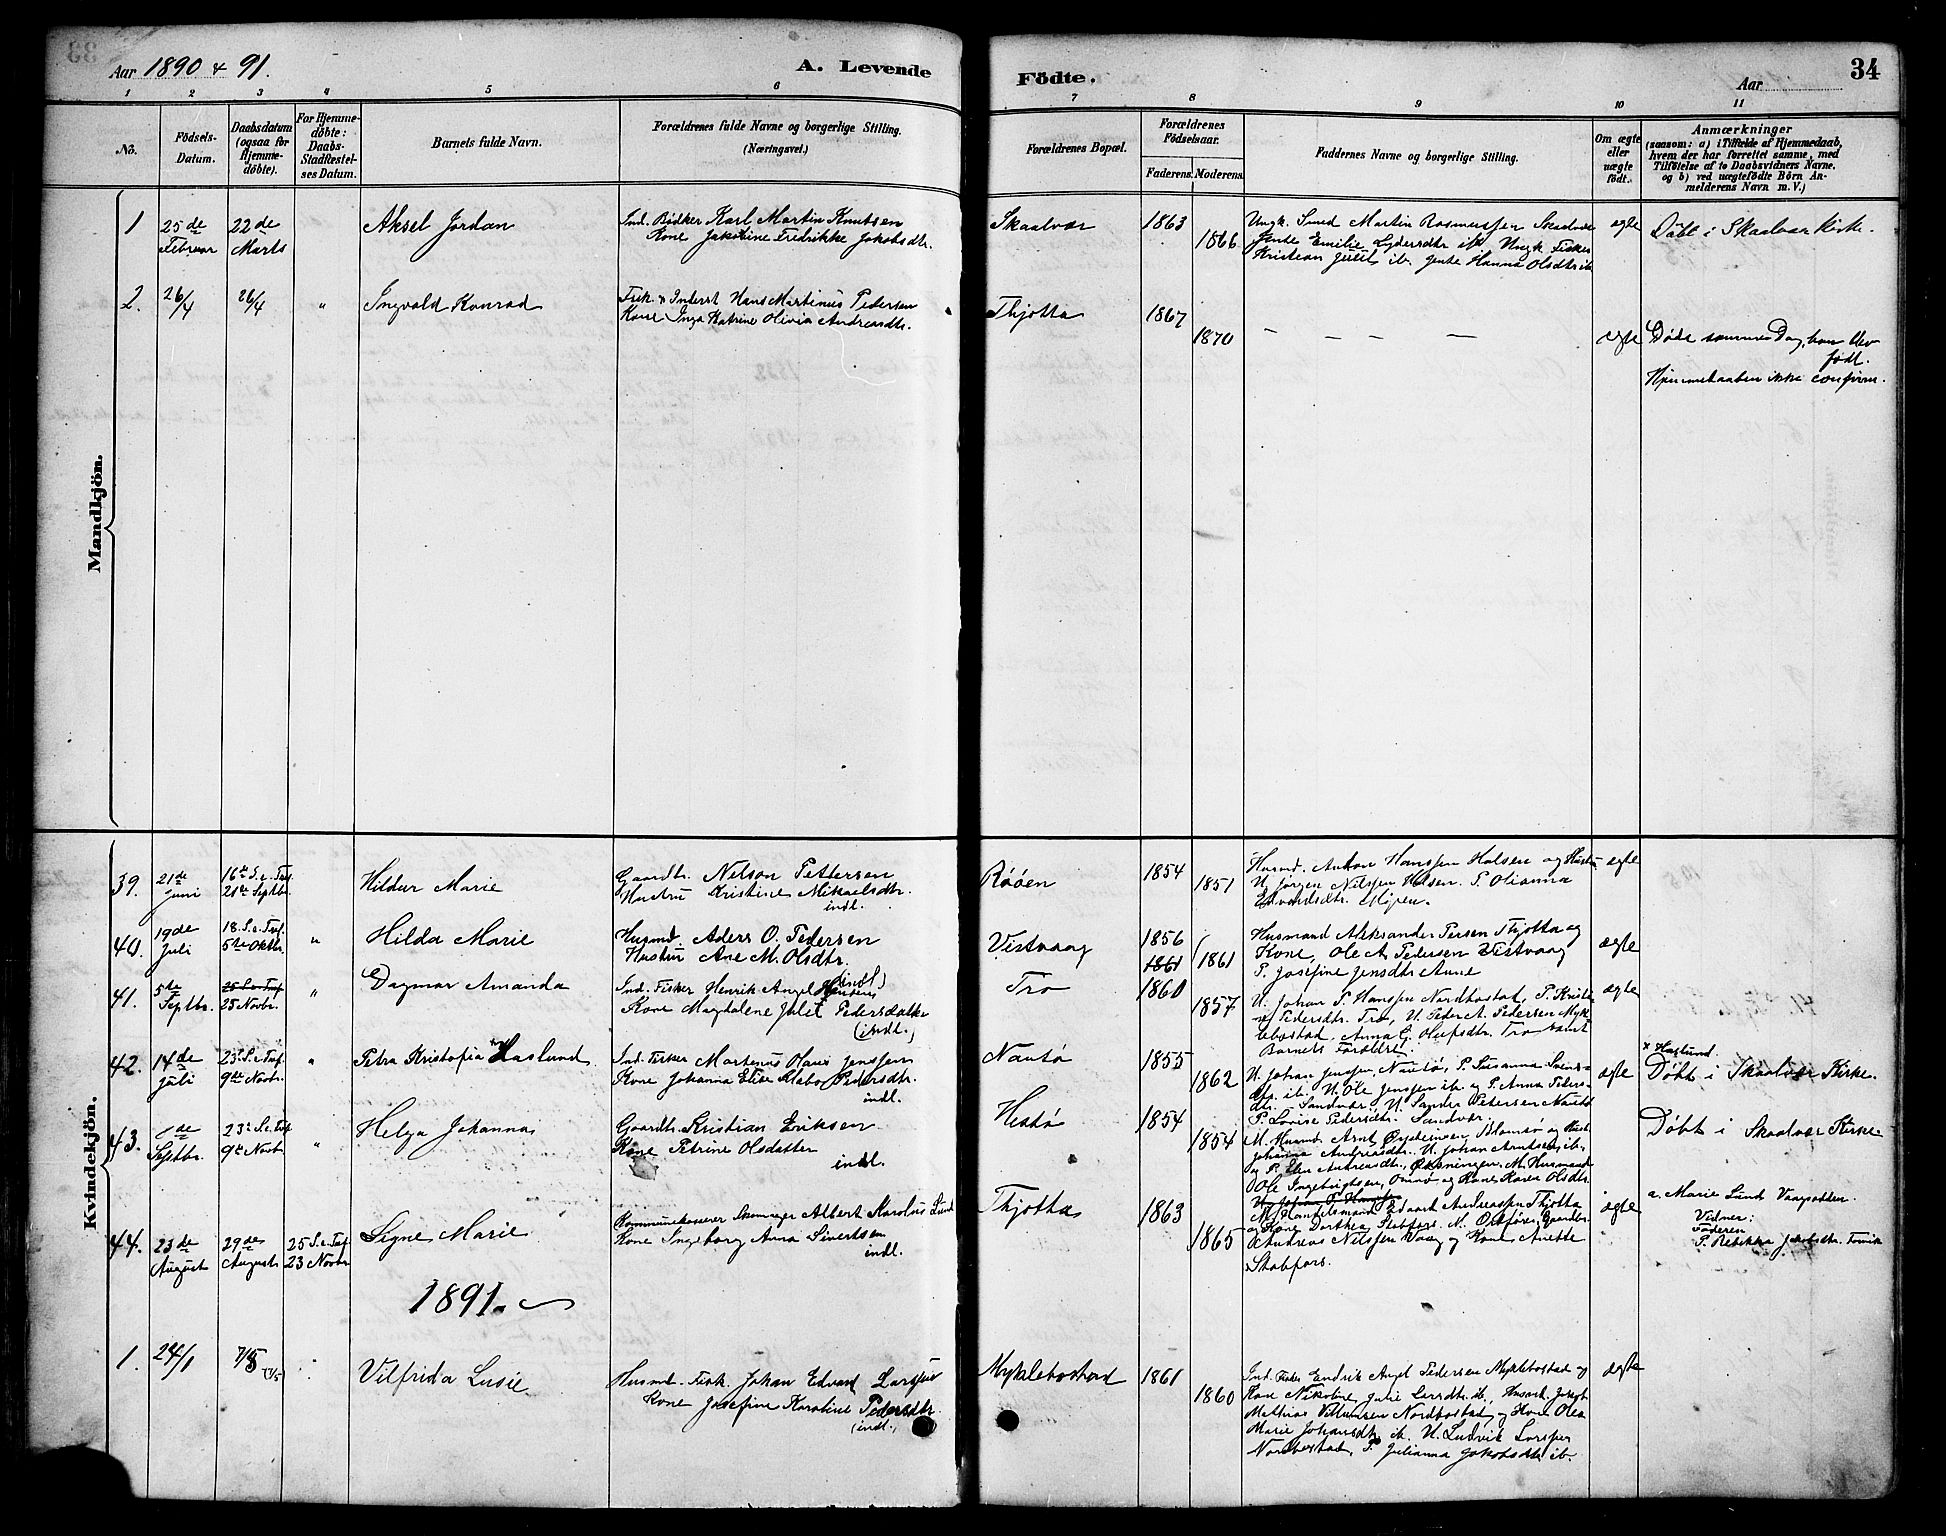 Aar 1890 & 91.
A. Levende
Födte.
Aar
34
1 2 3 4 5 6 7 8 9 10 11
No.
Födsels-Datum.
Daabsdatum (ogsaa for Hjemme-döbte).
For Hjemme-döbte: Daabs-Stadfæstel-ses Datum.
Barnets fulde Navn.
Forældrenes fulde Navne og borgerlige Stilling.
(Næringsvei.)
Forældrenes Bopæl.
Forældrenes Födselsaar.
Faderens. Moderens.
Faddernes Navne og borgerlige Stilling.
Om ægte eller uægte födt.
Anmærkninger
(saasom: a) i Tilfælde af Hjemmedaab,
hvem der har forrettet samme, med
Tilföielse af to Daabsvidners Navne,
og b) ved uægtefödte Börn An-
melderens Navn m. V.)
Mandkjön.
1 25de Februar 22de Marts
Aksel Jordan
Ind. Bødker Karl Martin Knutsen
Kone Jakobine Fredrikke Jakobsdtr.
Skaalvær 1863 1866
Ungk. Smed Martin Rasmussen Skaalvær
Jente Emilie Lydersdtr ib. Ungk. Fisker
Kristian Juul ib. Jente Hanna Olsdtr ib.
egte
Døbt i Skaalvær Kirke.
2. 26/4 26/4 "
Ingvald Konrad
Fisk. & Inderst Hans Martinus Pedersen
Kone Inga Katrine Olivia Andreasdtr.
Thjotta 1867 1870
— — — —
egte
Døde sammes Dag, han blev
født.
Hjemmedaaben ikke confirm.
Kvindekjön.
39. 21de Juni 16de S.e.Tref. 21de Septbr.
Hildur Marie
Gaardbr. Nelson Pettersen
Hustru Kristine Mikaelsdtr.
indl.
Røøen 1854 1851
Husmd. Anton Hanssen Holsen og Hustru
U. Jørgen Nilssen Holsen. P. Olianna
Edvardsdtr.
egte
40. 19de Juli 18. S.e.Tref. 5te Oktbr. "
Hilda Marie
Husmd. Aders O. Pedersen
Hustru Ane M. Olsdtr.
Vistvaag 1856 1861 1861
Husmand Aleksander Persen Thjotta og
Kone, Ole A. Pedersen Vistvaag
P. Josefine Jensdtr Aune
ægte
41. 5te Septbr. 25 S.e.Tref 25 Novbr. "
Dagmar Amanda
Ind. Fisker Henrik Angel Hansen (indl.)
Kone Magdalene Julie Pedersdatter
(indl.)
Tro 1860 1857
U. Johan P. Hanssen Nordbostad, P. Kristi-
ne Pedersdtr. Tro, U. Peder A. Pedersen Myk-
lebostad, Anna G. Olufsdtr. Tro samt
Barnets Forældre
ægte
42. 14de Juli 23d S.e.Tref. 9de Novbr. "
Petra Kristofia x Haslund
Ind. Fisker Martenus Olaus Jenssen
Kone Johanna Elise Pedersdtr.
indl.
Nautø 1855 1862
U. Johan Jenssen, Nautø, P. Susanna Svends-
dtr. ib. U. Ole Jenssen ib. og P. Anna Peders-
dtr. Sandvær. U. Sander Petersen Nautø
P. Lovise Pedersdtr. Sandvær.
egte
x Haslund.
Døbt i Skaalvær Kirke.
43. Septbr. 23de S.e.Tref. 9de Novbr. "
Helga Johanna
Gaardbr. Kristian Eriksen
Kone Petrine Olsdatter
indl.
Hestø 1854 1854
M. Husmd. Arnt Øysteinsen Blomsø og Hust.
Johanna Andreasdtr. U. Johan Arntsen ib.
og P. Elen Andreasdtr., Øksningen, M. Husmand
Ole Ingebrigtsen, Omnø og Kone Karen Olsdtr.
Døbt i Skaalvær Kirke
44. 23de August 29de August 25 S.e.Tref. 23 Novbr.
Signe Marie
Kommunekasserer Skomager Albert Karolius Lund
Kone Ingeborg Anna Sivertsen
indl.
Thjotta 1863 1865
M. Handelsmand Edvart Andreassen Thjotta
og Kone Dorthea Stabfors. M. Gaardbr.
Andreas Nilssen Vaag og Kone Anette
Stabfors.
ægte
a. Marie Lund Vaagsodden.
Vidner:
Faderen
P. Rebekka Jakobsdtr. Forvik
1891.
1. 24/1 7/5 17/5
Vilfrida Lusie
Husmd. Fisk. Johan Edvard Larssen
Kone Josefine Karoline Pedersdtr.
(indl.)
Myklebostad 1861 1860
Ind. Fisker Endrik Angel Pedersen Myklebostad og
Kone Nikoline Julie Larsdtr. ib., Husmd. Jakob
Mathias Villumsen Nordbostad og Kone Olea
Marie Johansdtr ib. U. Ludvik Larssen
Nordbostad, P. Julianna Jakobsdtr. ib.
ægte